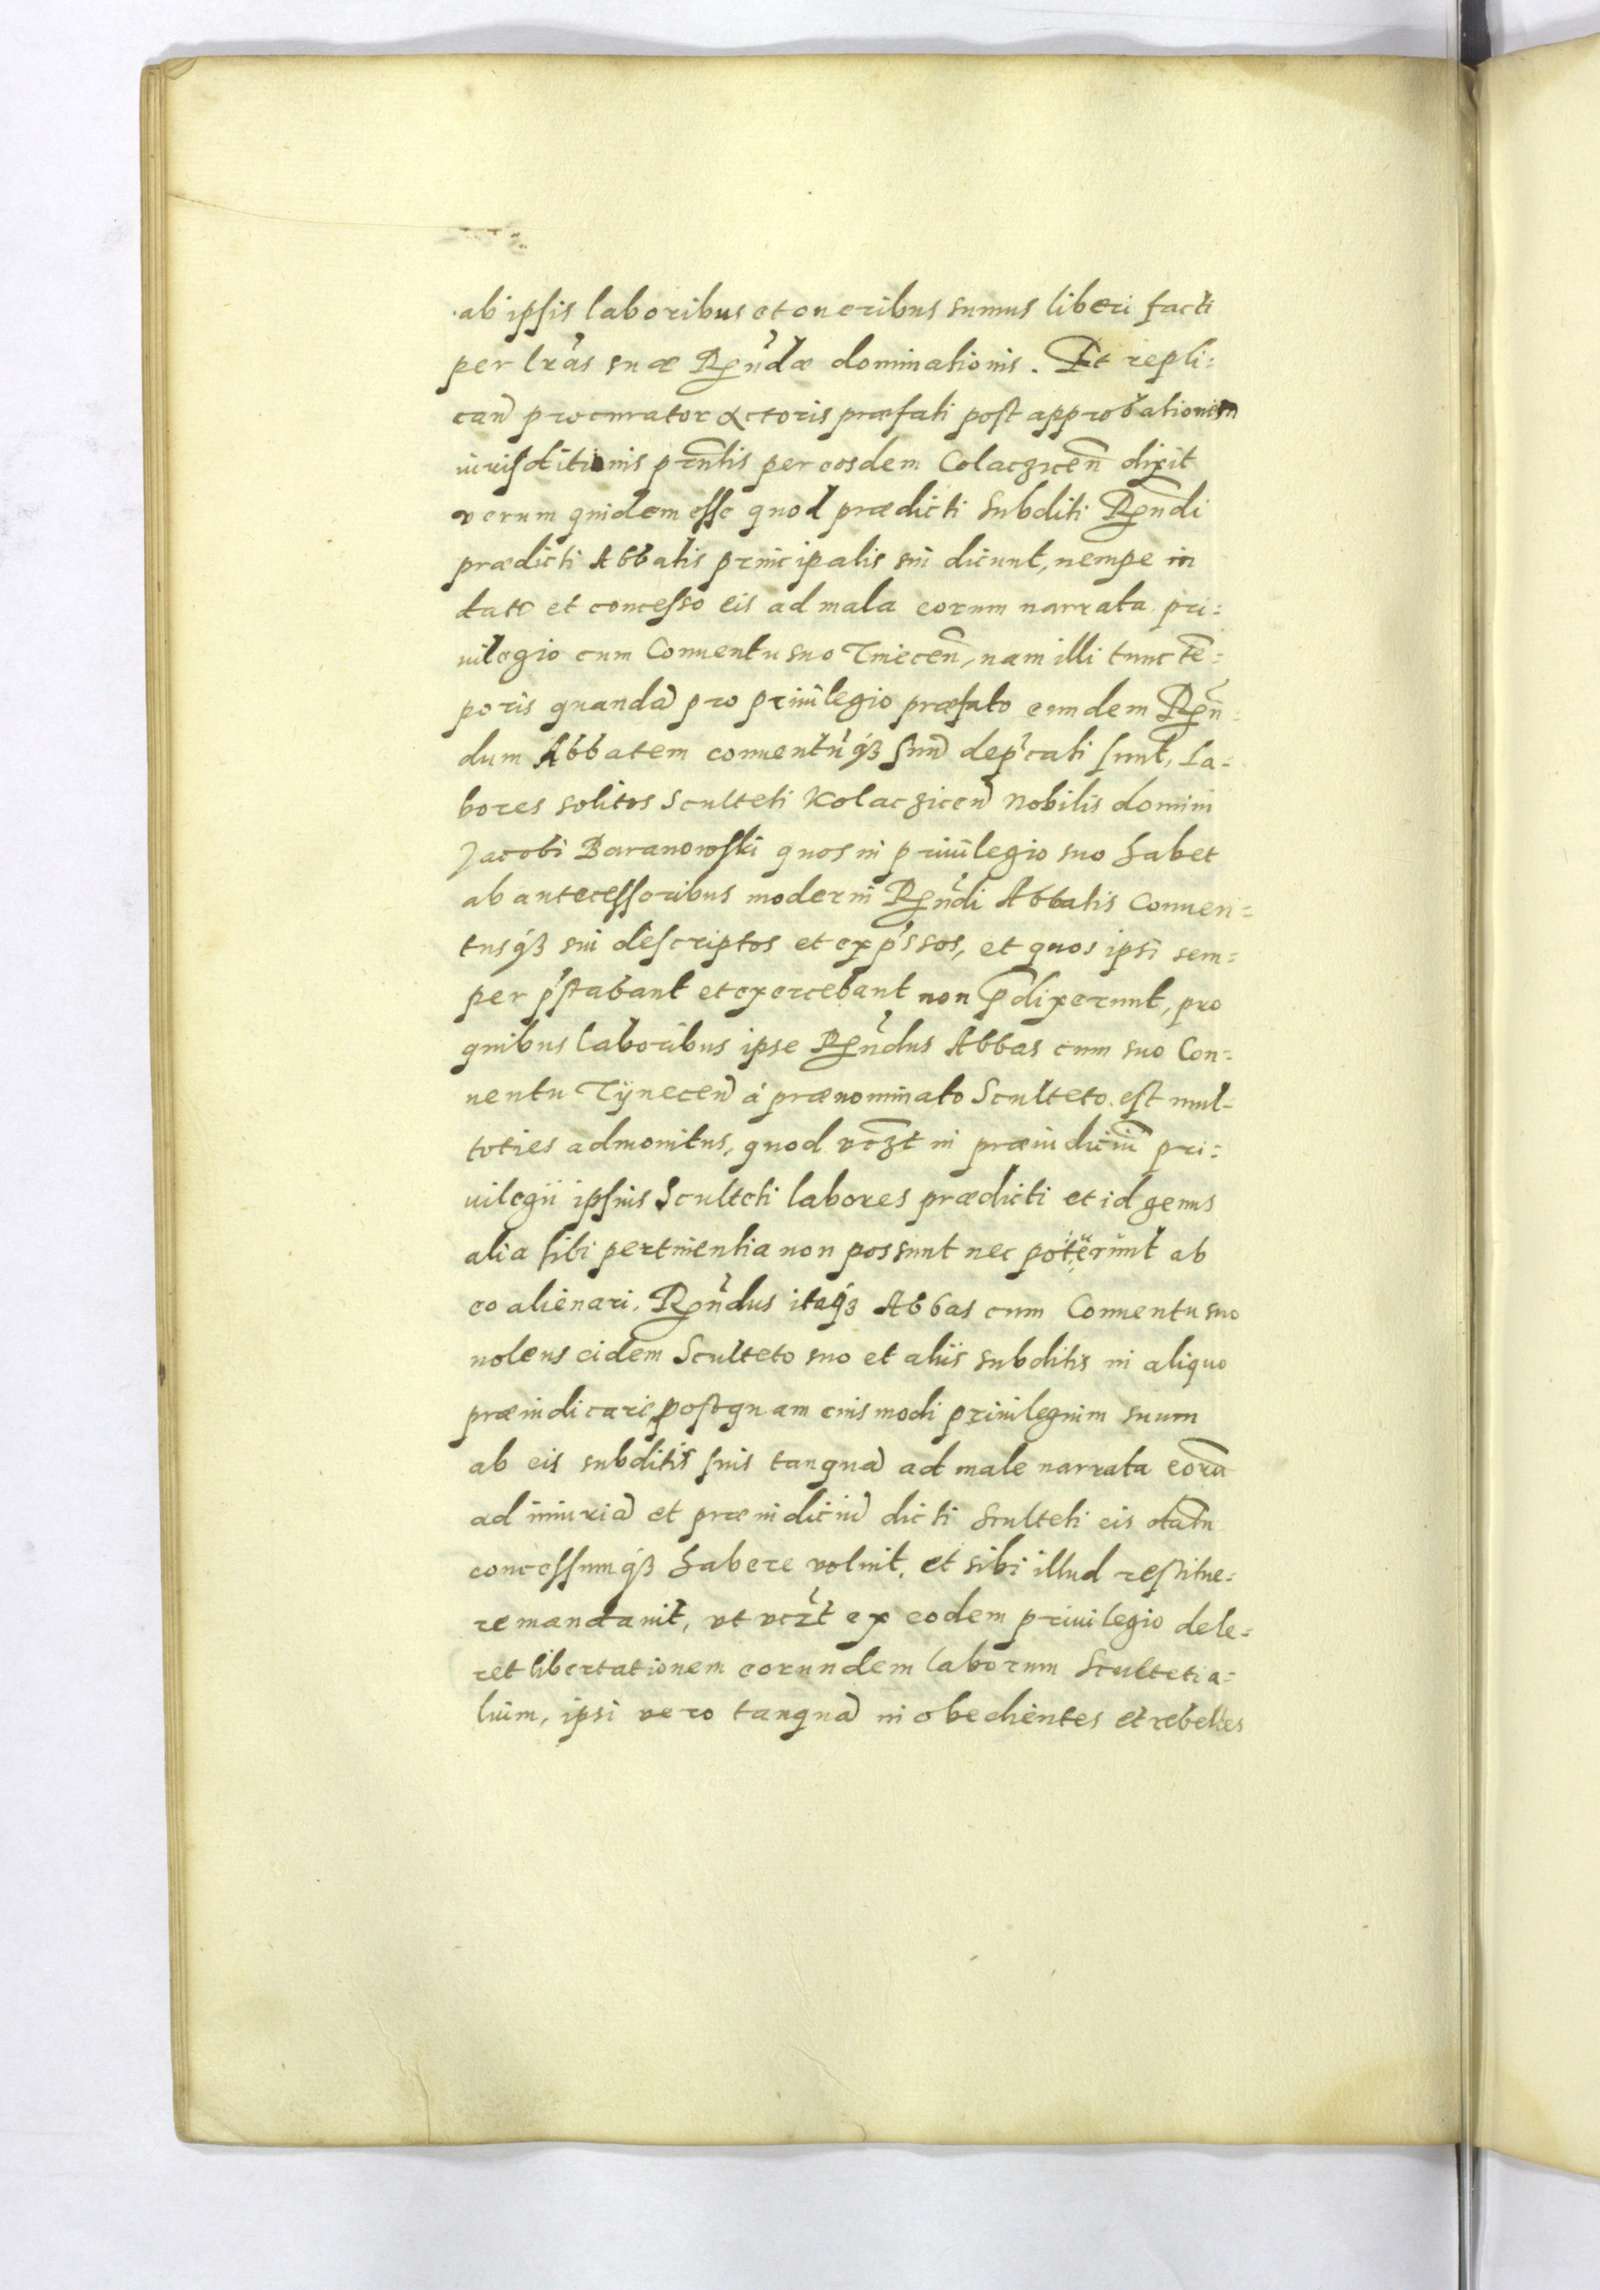 ab ipsis laboribus et oneribus sumus liberi facti
per lr̃as suæ Rn̄dæ dominationis. Et repli=
can̄ procurator Actoris præfati post approbationem
iurisditionis pn̄tis per eosdem Colaczicen̄ dixit
verum quidem esse quod prædicti subditi Rn̄di
prædicti Abbatis principalis sui dicunt, nempe in
dato et concesso eis ad mala eorum narrata pri=
uilegio cum Conuentu suo Tniecen̄, nam illi tunc tē=
poris quandā pro priuilegio præfato eundem Rn̄=
dum Abbatem conuentūq₃ suū depꝰcati sunt, la=
bores solitos Sculteti Kolaczicen̄ Nobilis domini
Jacobi Baranowski quos in priuilegio suo habet
ab antecessoribus moderni Rn̄di Abbatis Conuen=
tusq₃ sui descriptos et exp̃ssos, et quos ipsi sem=
per p̃stabant et exercebant non p̄dixerunt, pro
quibus laboribus ipse Rn̄dus Abbas cum suo Con=
uentu Tÿnecen̄ á prænominato Sculteto est mul=
toties admonitus, quod vcz̄t in præiudiciū pri=
uilegii ipsius Sculteti labores prædicti et id genus
alia sibi pertinentia non possunt nec poterunt ab
eo alienari. Rn̄dus itaq₃ Abbas cum Conuentu suo
nolens eidem Sculteto suo et aliis subditis in aliquo
præiudicare, postquam eiusmodi priuilegium suum
ab eis subditis suis tanquā ad male narrata eorū
ad iniuriā et præiudiciū dicti Sculteti eis datū
concessumq₃ habere voluit, et sibi illud restitue=
re mandauit, vt vcz̄t ex eodem priuilegio dele=
ret libertationem eorundem laborum Scultetia=
lium, ipsi vero tanquā inobedientes et rebelles